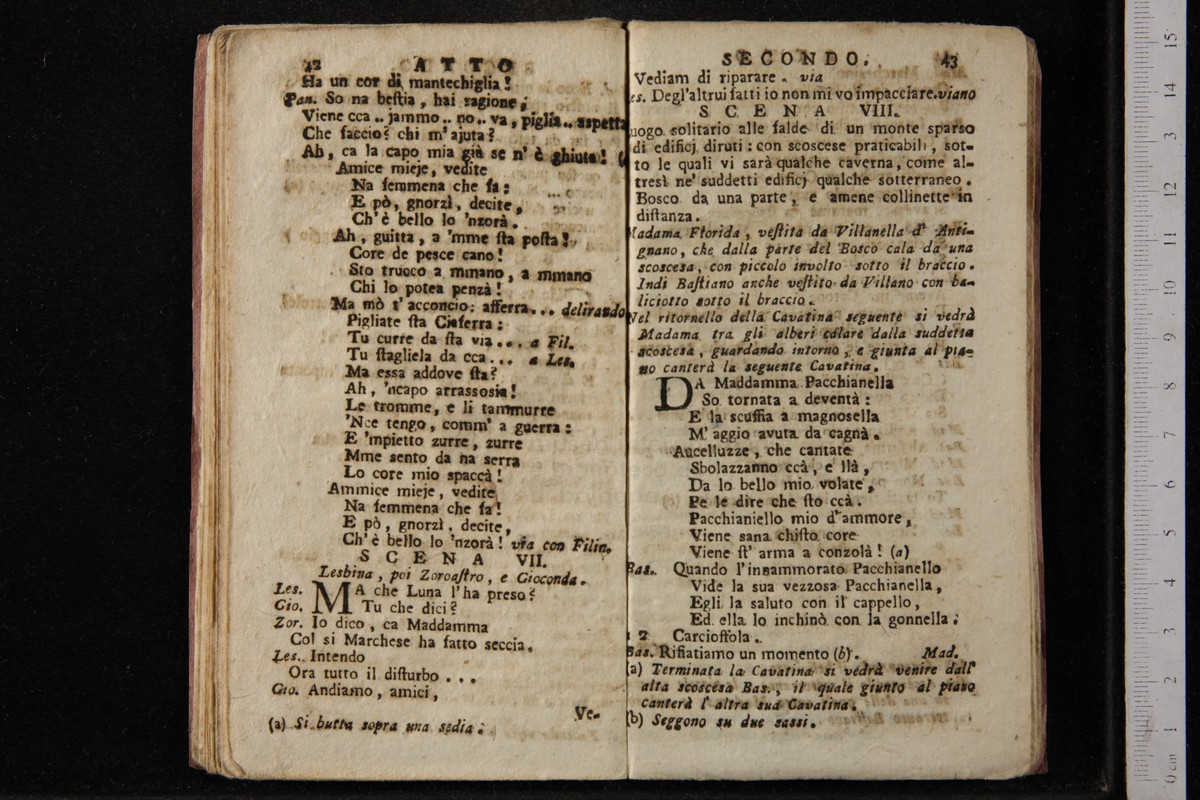 42 ATTO
Ha un cor di mantechiglia!
Pan. So na beſtia, hai ragione;
Viene cca.. jammo.. no.. va, piglia.. aspetta
Che faccio? chi m'ajuta?
Ah, ca la capo mia già se n'è ghiuta!
Amice mieje, vedite
Na femmena che fa:
E pò, gnorzì, decite,
Ch'è bello lo 'nzorà.
Ah, guitta, a 'mme ſta poſta!
Core de pesce cano!
Sto trucco a mmano, a mmano
Chi lo potea penzà!
Ma mò t'acconcio: afferra... delirando
Pigliate ſta Ciaferra:
Tu curre da ſta via... a Fil.
Tu ſtagliela da cca... a Les.
Ma essa addove ſta?
Ah, 'ncapo arrassosia!
Le tromme, e li tammurre
'Nce tengo, comm' a guerra:
E 'mpietto zurre, zurre
Mme sento da na serra
Lo core mio spaccà!
Ammice mieje, vedite
Na femmena che fa!
E pò, gnorzì, decite,
Ch'è bello lo 'nzorà! via con Filin.
SCENA VII.
Lesbina, poi Zoroaſtro, e Gioconda.
Les. MA che Luna l'ha preso?
Gio. Tu che dici?
Zor. Io dico, ca Maddamma
Col si Marchese ha fatto seccia.
Les. Intendo
Ora tutto il diſturbo...
Gio. Andiamo, amici,
Ve-
(a) Si butta sopra una sedia.
SECONDO. 43
Vediam di riparare. via
es. Degl'altrui fatti io non mi vo impacciare. viano
SCENA VIII.
uogo solitario alle falde di un monte sparso
di edificj diruti: con scoscese praticabili, sot-
to le quali vi sarà qualche caverna, come al-
tresì ne' suddetti edificj qualche sotterraneo.
Bosco da una parte, e amene collinette in
diſtanza.
Madama Florida, veſtita da Villanella d' Anti-
gnano, che dalla parte del Bosco cala da una
scoscesa, con piccolo involto sotto il braccio.
Indi Baſtiano anche veſtito da Villano con ba-
liciotto sotto il braccio.
Nel ritornello della Cavatina seguente si vedrà
Madama tra gli alberi calare dalla suddetta
scoscesa, guardando intorno, e giunta al pia-
no canterà la seguente Cavatina.
DA Maddamma Pacchianella
So tornata a deventà:
E la scuffia a magnosella
M'aggio avuta da cagnà.
Aucelluzze, che cantate
Sbolazzanno ccà, e llà,
Da lo bello mio volate,
Pe le dire che ſto ccà.
Pacchianiello mio d'ammore,
Viene sana chiſto core
Viene ſt'arma a conzolà! (a)
Bas. Quando l'innammorato Pacchianello
Vide la sua vezzosa Pacchianella,
Egli la saluto con il cappello,
Ed ella lo inchinò con la gonnella;
2 Carcioffola.
Bas. Rifiatiamo un momento (b). Mad.
(a) Terminata la Cavatina si vedrà venire dall'
alta scoscesa Bas., il quale giunto al piano
canterà l'altra sua Cavatina.
(b) Seggono su due sassi.
0 cm 1 2 3 4 5 6 7 8 9 10 11 12 13 14 15